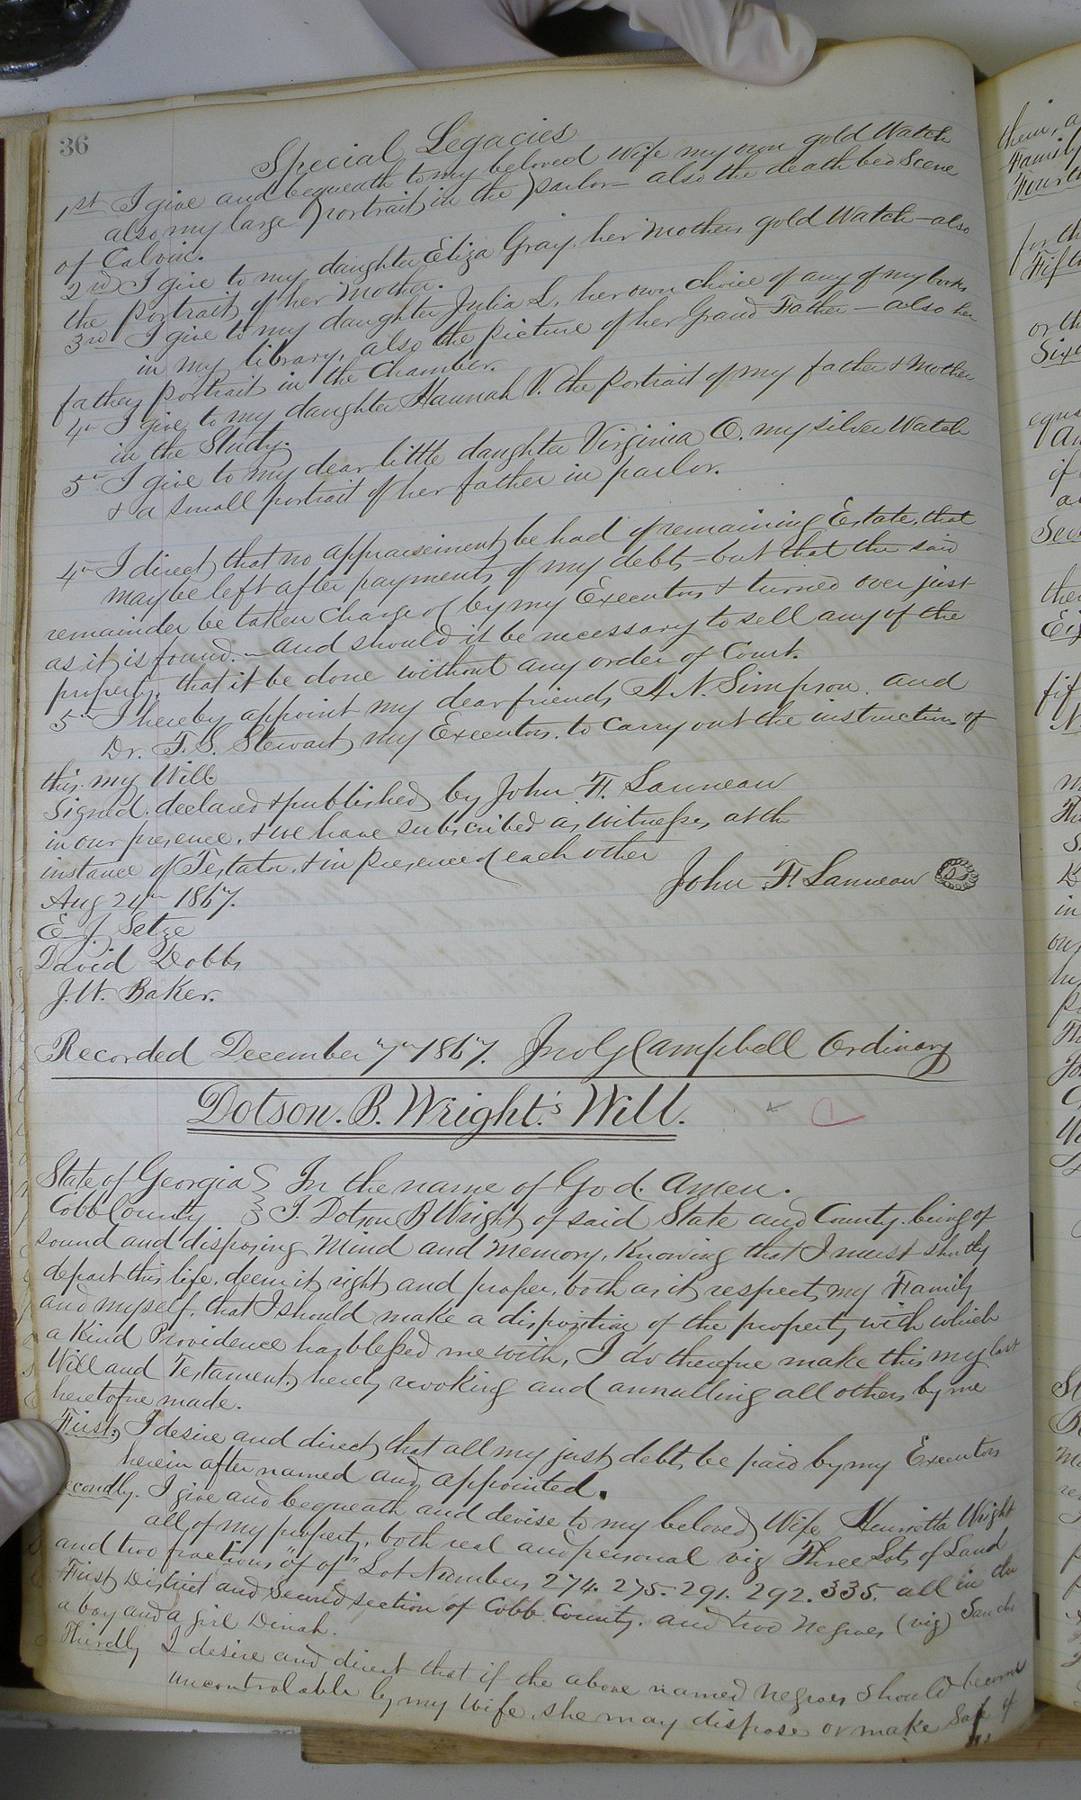 36
Special Legacies
1st I give and bequeath to my beloved Wife my own gold Watch
also my large portrait in the parlor - also the death bed Scene
of Calvin.
2nd I give to my daughter Eliza Gray, her Mothers gold Watch - also
the portrait of her Mother.
3rd I give to my daughter Julia L. her own choice of any of my books
in my library, also the picture of her Grand Father - also her
fathers portrait in the chamber.
4th I give to my daughter Hannah V. the portrait of my father & mother
in the Study.
5th I give to my dear little daughter Virginia O. my silver Watch
& a small portrait of her father in parlor.
4th I direct that no appraisement be had of remaining Estate, that
may be left after payments of my debts - but that the said
remainder be taken charge of by my Executors & turned over just
as it is found. - and should it be necessary to sell any of the
property, that it be done without any order of Court.
5th I hereby appoint my dear friends A. N. Simpson. and
Dr. T. S. Stewart, my Executors. to carry out the instructions of
this. my Will.
Signed. declared & published by John F. Lanneau
in our presence, & we have subscribed as witnesses, at the
instance of Testator, & in presence of each other
John F. Lanneau
Aug 24th 1867.
E. J. Setze
David Dobbs
J. W. Baker.
Recorded December 7th 1867. Jno G Campbell Ordinary
Dotson. B. Wright's Will.
State of Georgia } In the name of God. Amen.
Cobb County } I. Dotson B Wright of said State and County. being of
sound and disposing Mind and Memory, Knowing that I must shortly
depart this life. deem it right and proper. both as it respects my Family
and myself, that I should make a disposition of the property with which
a Kind Providence has blessed me with, I do therefore make this my last
Will and Testament, hereby revoking and annulling all others by me
heretofore made.
First, I desire and direct, that all my just debts be paid by my Executors
herein after named and appointed.
econdly. I give and bequeath and devise to my beloved Wife Henrietta Wright
all of my property, both real and personal viz Three Lots of Land
and two fractions "of" Lot Numbers 274. 275. 291. 292. 335. all in the
First District and Second section of Cobb. County. and two Negroes, (viz)
a boy and a girl Dinah.
Thirdly I desire and direct that if the above named negroes should become
uncontrolable by my Wife, she may dispose or make Sale of